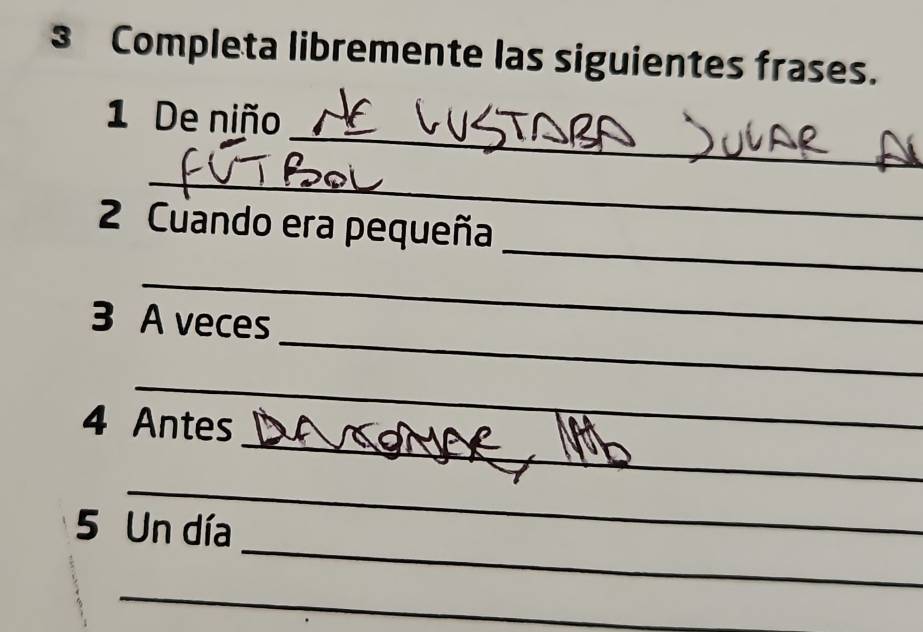 3 Completa libremente las siguientes frases.
1 De niño ME GUSTABA JUGAR AL
FÚTBOL
2 Cuando era pequeña
3 A veces
4 Antes
5 Un día